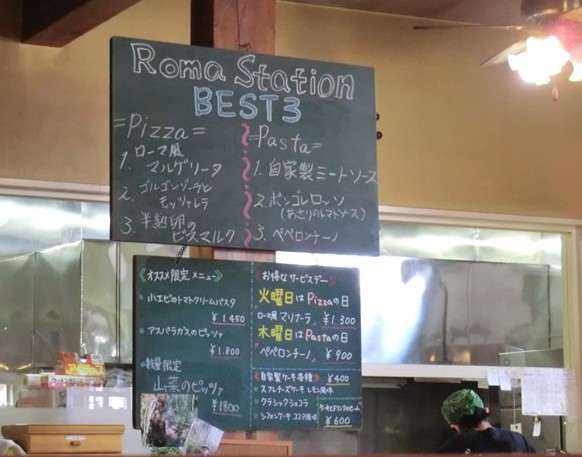 Roma Station
BEST3
=Pizza=
1. ローマ風
マルゲリータ
2. ゴルゴンゾーラと
モッツァレラ
3. 半熟卵の
ビスマルク
=Pasta=
1. 自家製ミートソース
2. ボンゴレロッソ
(あさりのトマトソース)
3. ペペロンチーノ
《オススメ限定メニュー》
小エビのトマトクリームパスタ
¥1.450
アスパラガスのピッツァ
¥1.800
数量限定
山菜のピッツァ
¥1800
《お得なサービスデー》
火曜日はPizzaの日
ローマ風 マリナーラ ¥1.300
木曜日はPastaの日
ペペロンチーノ ¥900
《自家製ケーキ各種》 ¥400
スフレチーズケーキ レモン風味
クラシックショコラ
シフォンケーキ ココア風味
¥600